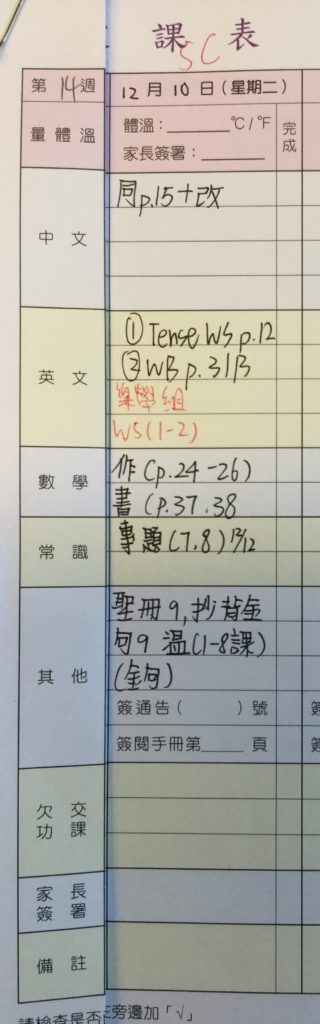 課表
5C
第14週
12月10日(星期二)
量體溫
體溫:______℃/℉
家長簽署:______
完成
中文
同p.15+改
英文
① Tense WS p.12
② WB p.31B
樂學組
WS(1-2)
數學
作(p.24-26)
書(p.37.38
常識
專題(7,8) 12/12
其他
聖冊9,抄背金
句9 溫(1-8課)
(金句)
簽通告(   )號
簽閱手冊第____頁
欠交功課
家長簽署
備註
請檢查是否
旁邊加「√」